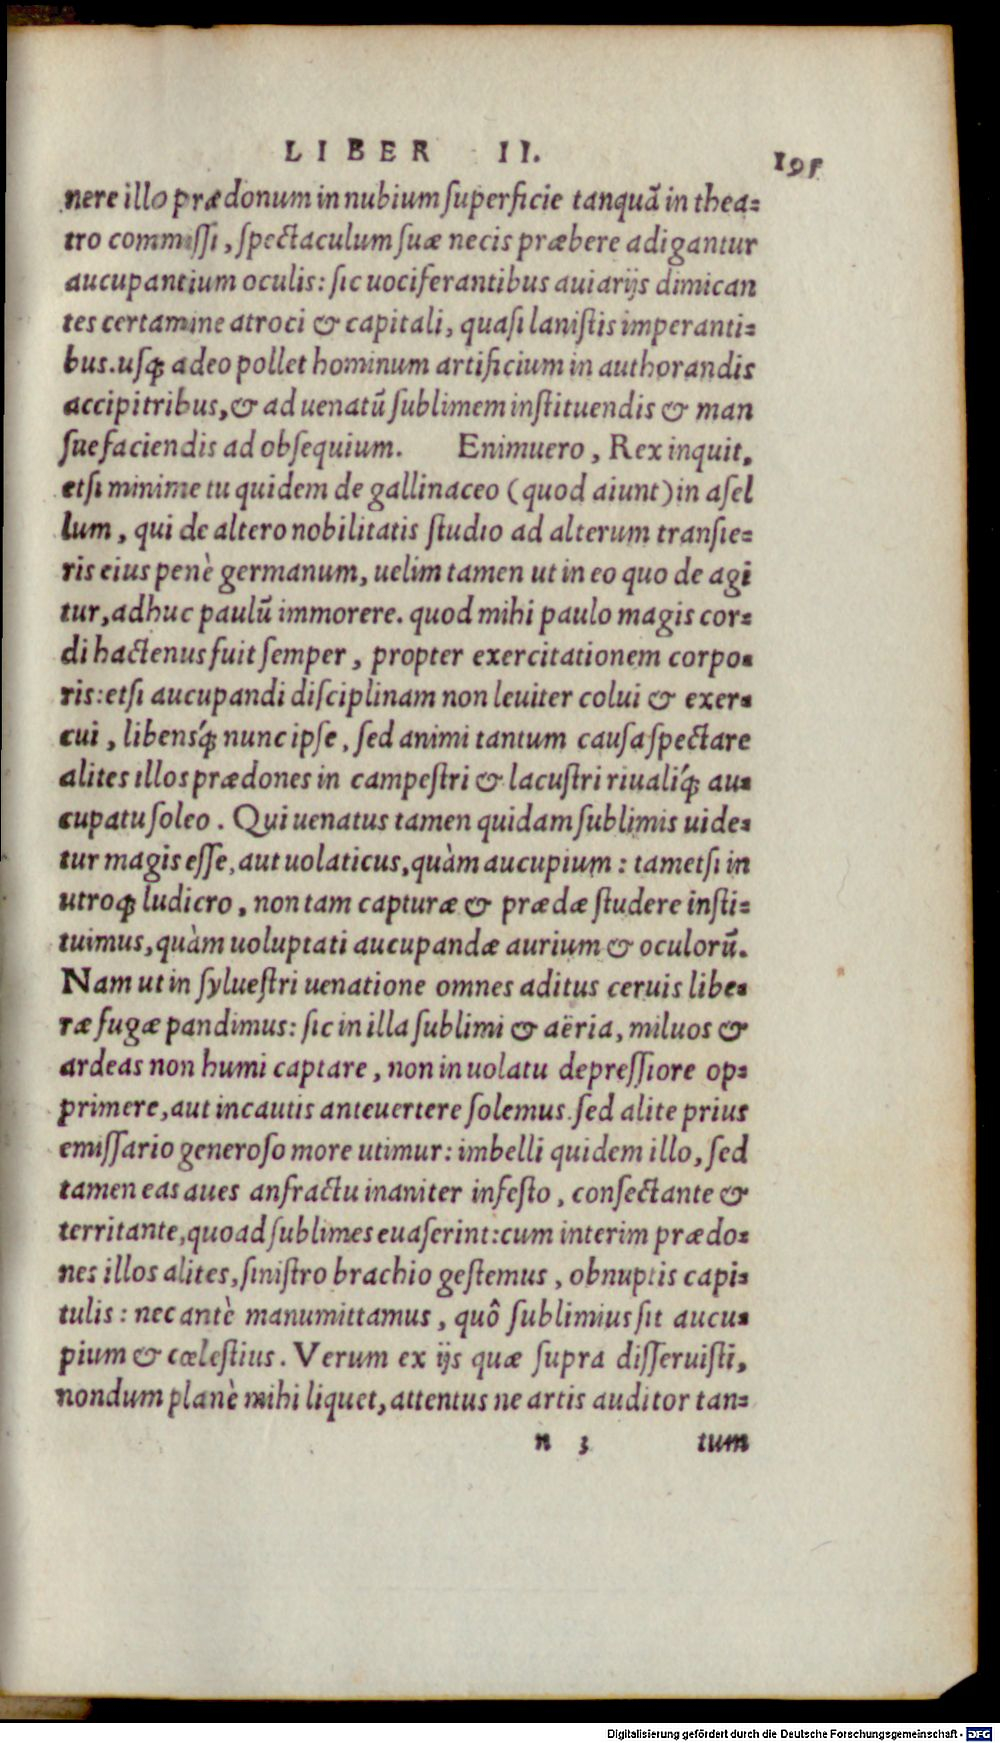 LIBER II. 195
nere illo prædonum in nubium ſuperficie tanquã in thea=
tro commiſſi, ſpectaculum ſuæ necis præbere adigantur
aucupantium oculis: ſic uociferantibus auiarijs dimican
tes certamine atroci & capitali, quaſi laniſtis imperanti=
bus. uſq; adeo pollet hominum artificium in authorandis
accipitribus, & ad uenatũ ſublimem inſtituendis & man
ſuefaciendis ad obſequium. Enimuero, Rex inquit,
etſi minime tu quidem de gallinaceo (quod aiunt) in aſel
lum, qui de altero nobilitatis ſtudio ad alterum tranſie=
ris eius penè germanum, uelim tamen ut in eo quo de agi
tur, adhuc paulũ immorere. quod mihi paulo magis cor=
di hactenus fuit ſemper, propter exercitationem corpo=
ris: etſi aucupandi diſciplinam non leuiter colui & exer=
cui, libensq́; nunc ipſe, ſed animi tantum cauſa ſpectare
alites illos prædones in campeſtri & lacuſtri riualiq́; au=
cupatu ſoleo. Qui uenatus tamen quidam ſublimis uide=
tur magis eſſe, aut uolaticus, quàm aucupium: tametſi in
utroq; ludicro, non tam capturæ & prædæ ſtudere inſti=
tuimus, quàm uoluptati aucupandæ aurium & oculorũ.
Nam ut in ſylueſtri uenatione omnes aditus ceruis libe=
ræ fugæ pandimus: ſic in illa ſublimi & aëria, miluos &
ardeas non humi captare, non in uolatu depreſſiore op=
primere, aut incautis anteuertere ſolemus. ſed alite prius
emiſſario generoſo more utimur: imbelli quidem illo, ſed
tamen eas aues anfractu inaniter infeſto, conſectante &
territante, quoad ſublimes euaſerint: cum interim prædo=
nes illos alites, ſiniſtro brachio geſtemus, obnuptis capi=
tulis: nec antè manumittamus, quô ſublimius ſit aucu=
pium & cœleſtius. Verum ex ijs quæ ſupra diſſeruiſti,
nondum planè mihi liquet, attentus ne artis auditor tan=
n 3 tum
Digitalisierung gefördert durch die Deutsche Forschungsgemeinschaft - DFG